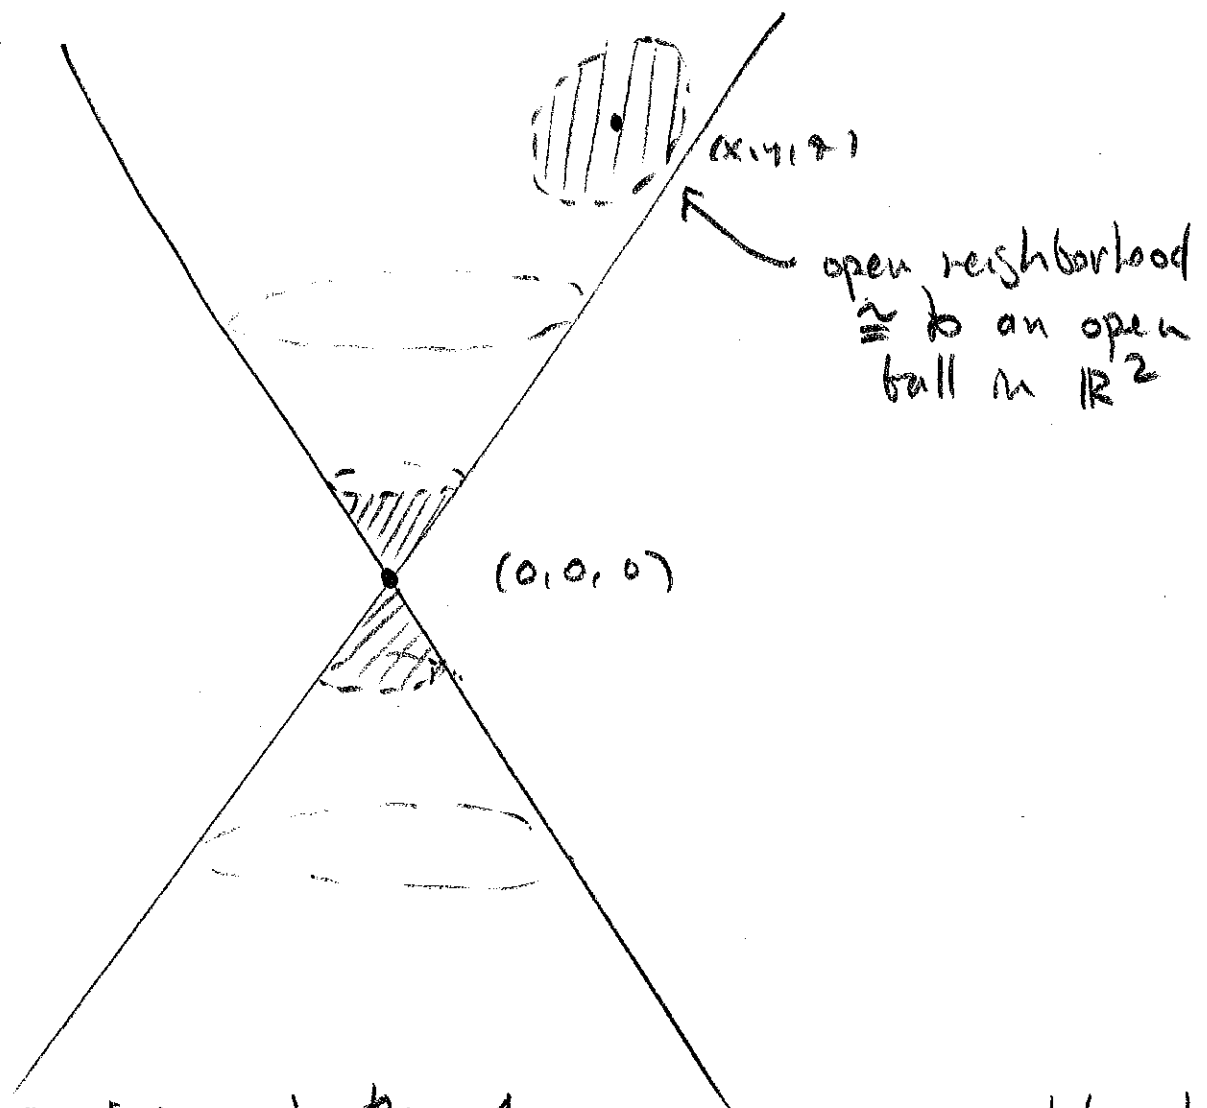 (x,y,z)
open neighborhood
≅ to an open
ball in ℝ²
(0,0,0)